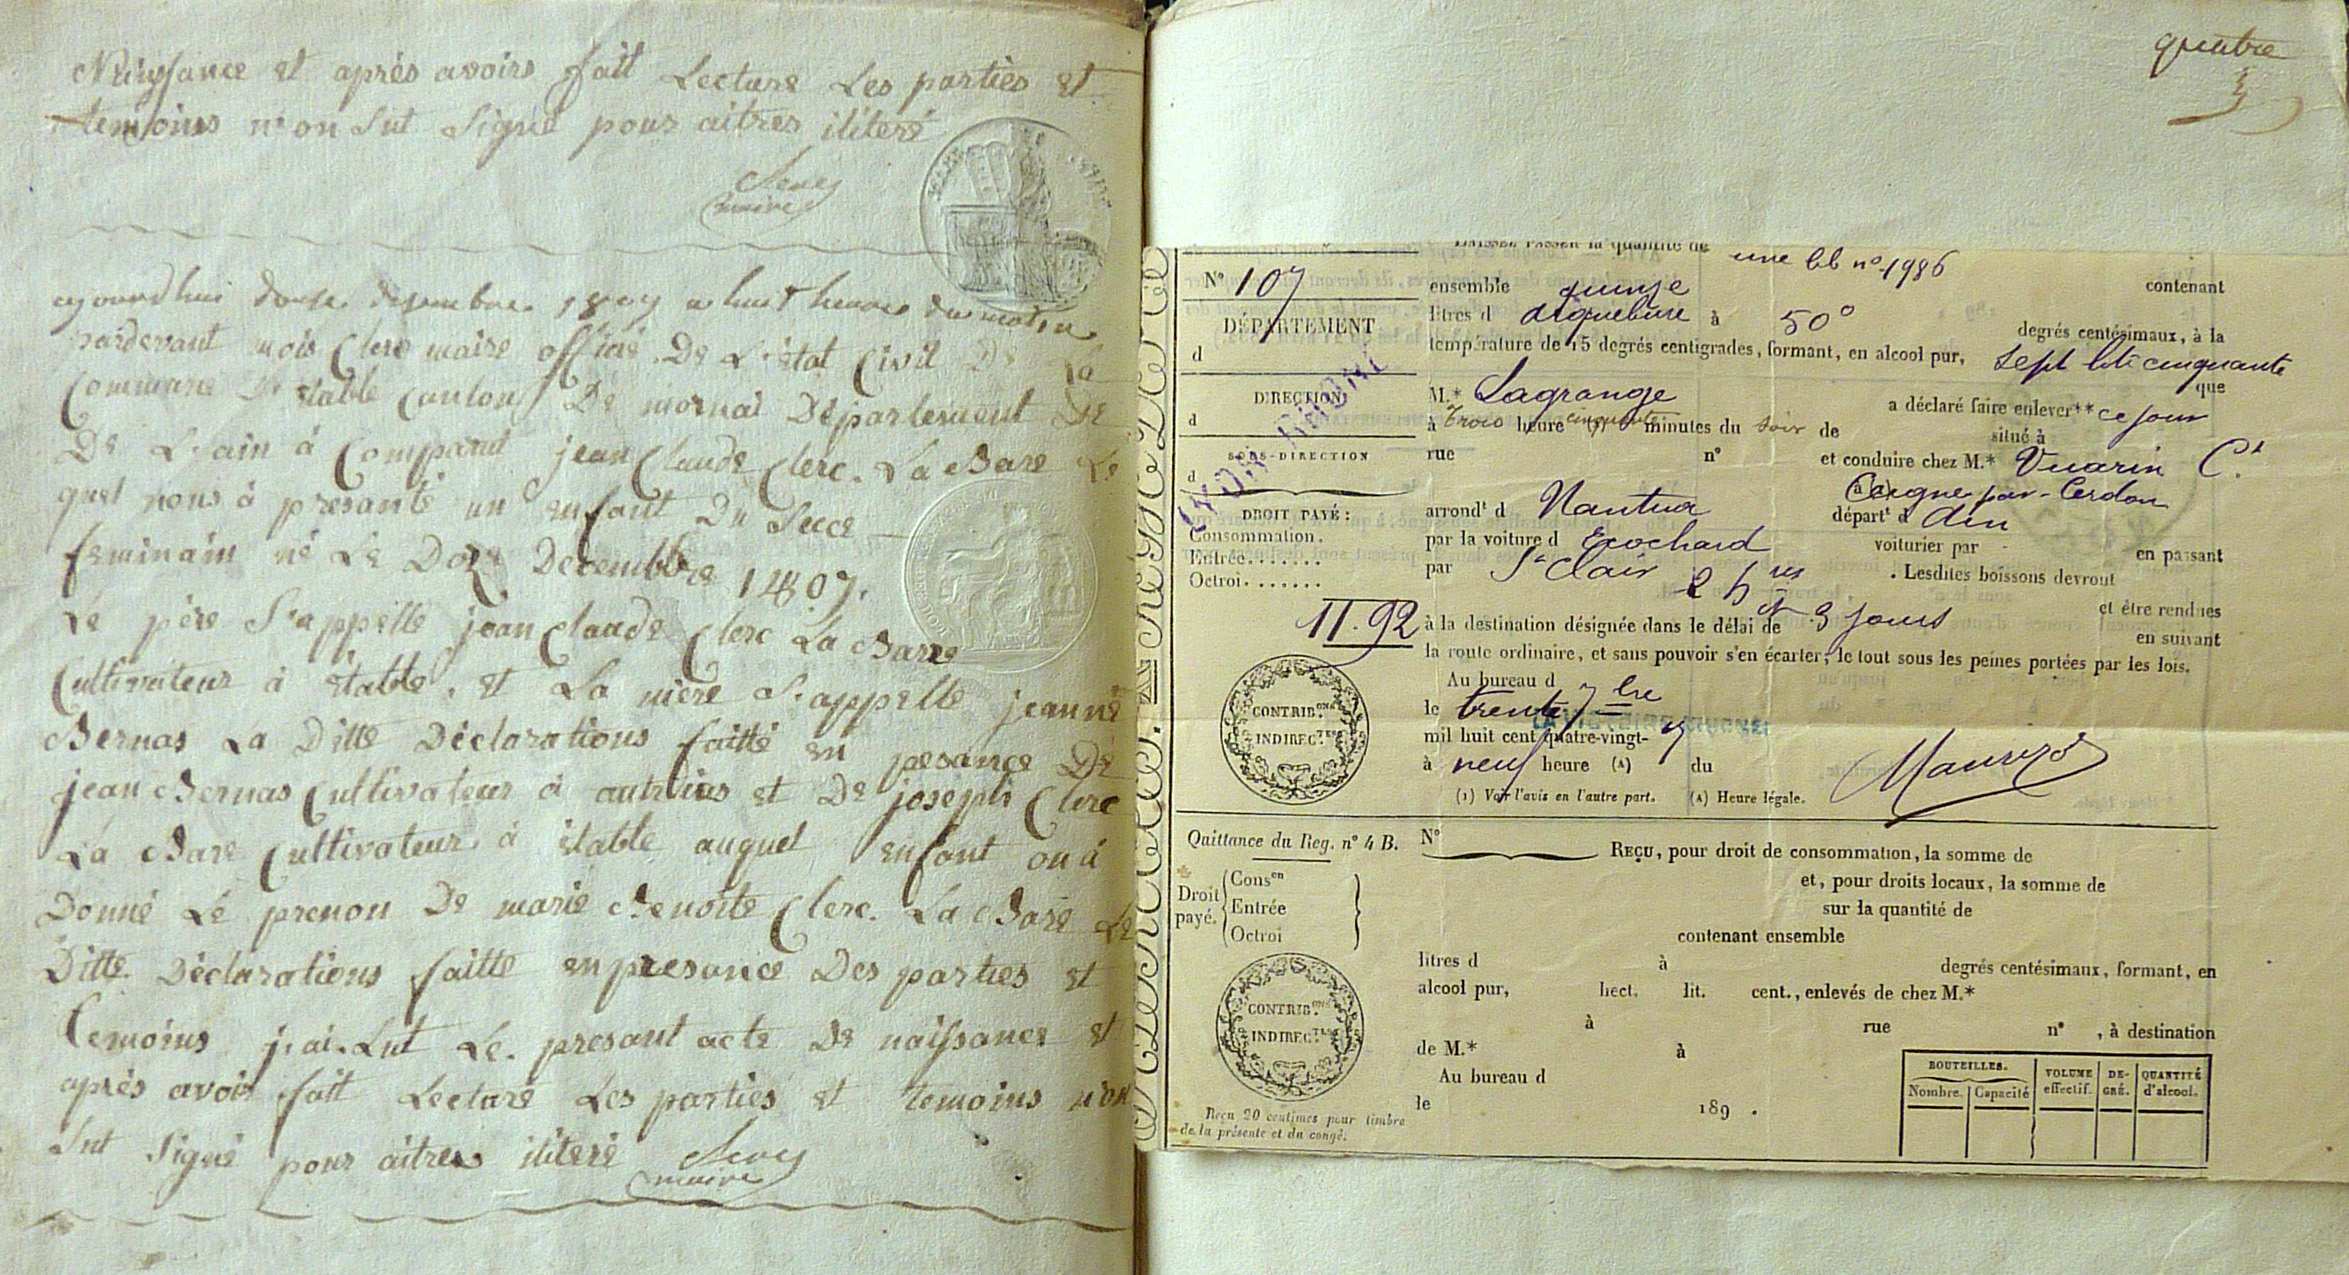 Naissance et aprés avoirs fait Lecture Les parties et
temoins n'on Sut Signé pour aitres iliteré
maire
ajourdhui douse desembre 1807 a huit heures du matin
pardevant mois Clerc maire officié De L'état Civil De La
Commune D' étable Canton De mornai Département De
De L'ain à Comparut jean Claude Clerc. La Bare Le
quel nous à presanté un enfant Du Secce
feminain né Le Doze Decembbre 1807.
Lé pére S'appelle jean Claude Clerc La Barre
Cultivateur à étable. et La mere S'appelle jeanne
Bernas La Ditte Déclarations faitte en presance De
jean Bernas Cultivateur à autrias et De joseph Clerc
La Bare Cultivateur à étable auquel enfant on à
Donné Lé prenon De marie Benoite Clerc. La Bare Le
Ditte Déclarations faitte en presance Des parties et
Temoins j'ai Lut Le. presant acte De naissance et
aprés avoir fait Lecture Les parties et temoins n'on
Sut Signé pour aitres iliteré
maire
quatre
la quantité de une bb n° 1986
N° 107
ensemble quinze contenant
litres d arquebuse à 50° degrés centésimaux, à la
DÉPARTEMENT
d
température de 15 degrés centigrades, formant, en alcool pur, sept lit cinquante
que
DIRECTION
d
LYON RHONE
M.* Lagrange a déclaré faire enlever** ce jour
à Trois heure cinquante minutes du soir de situé à
SOUS-DIRECTION
d
rue n° et conduire chez M.* Vuarin Ct
à Ceigne par Cerdon
DROIT PAYÉ:
Consommation.
Entrée.......
Octroi.......
11.92
arrondt d Nantua départt d Ain
par la voiture d Ecochard voiturier par en passant
par St Clair 2 hres . Lesdites boissons devront
et être rendues
à la destination désignée dans le délai de et 3 jours en suivant
la route ordinaire, et sans pouvoir s'en écarter; le tout sous les peines portées par les lois.
CONTRIB.ONS
INDIREC.TES
Au bureau d
le trente 7bre
mil huit cent quatre-vingt-
à neuf heure (A) du
(1) Voir l'avis en l'autre part. (A) Heure légale.
Quittance du Reg. n° 4 B.
N° REÇU, pour droit de consommation, la somme de
Droit payé. Consen
Entrée
Octroi
et, pour droits locaux, la somme de
sur la quantité de
contenant ensemble
litres d à degrés centésimaux, formant, en
alcool pur, hect. lit. cent., enlevés de chez M.*
à rue n° , à destination
de M.* à
Au bureau d
le 189 .
CONTRIB.ONS
INDIREC.TES
Reçu 20 centimes pour timbre
de la présente et du congé.
BOUTEILLES. VOLUME effectif. DE-GRÉ. QUANTITÉ d'alcool.
Nombre. Capacité